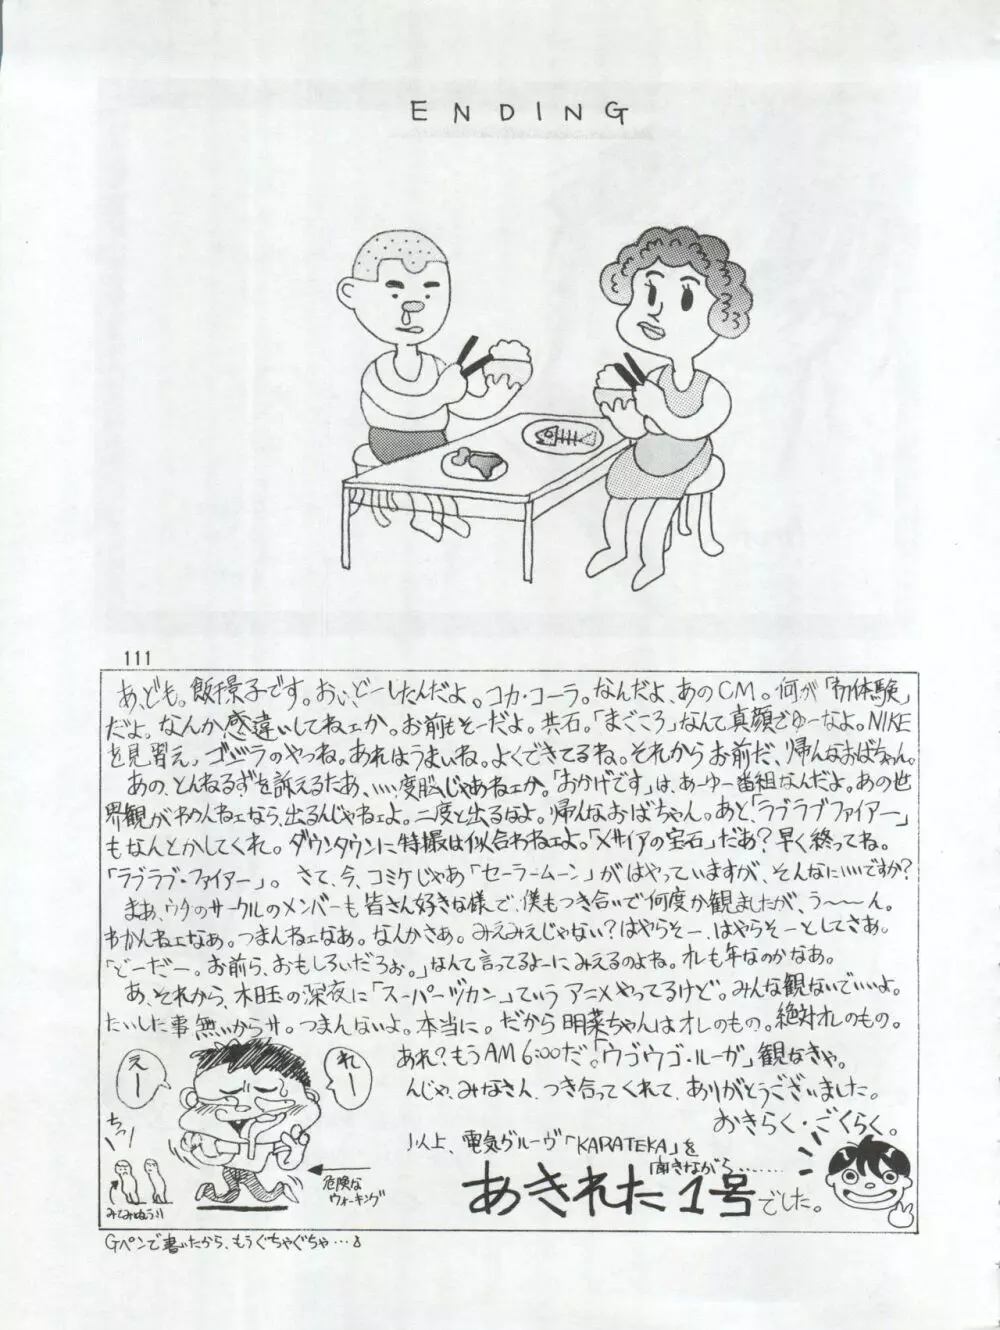 ENDING
111
あ、ども。飯干景子です。おい、どーしたんだよ。コカ・コーラ。なんだよ、あのCM。何が「初体験」
だよ。なんか感違いしてねェか。お前もそーだよ。共石。「まごころ」なんて真顔でゆーなよ。NIKE
を見習え。ゴジラのやつね。あれはうまいね。よくできてるね。それからお前だ、帰んなおばちゃん。
あの、とんねるずを訴えるたあ、いい度胸じゃあねェか。「おかげです」は、あーゆー番組なんだよ。あの世
界観がわかんねェなら、出るんじゃねェよ。二度と出るなよ。帰んなおばちゃん。あと、「ラブラブファイアー」
もなんとかしてくれ。ダウンタウンに特撮は似合わねェよ。「メサイアの宝石」だあ?早く終ってね。
「ラブラブ・ファイアー」。さて、今、コミケじゃあ「セーラームーン」がはやっていますが、そんなにいいですか?
まぁ、ウチのサークルのメンバーも皆さん好きな様で、僕もつき合いで何度か観ましたが、う〜〜ん。
わかんねェなぁ。つまんねェなぁ。なんかさあ。みえみえじゃない?はやらそー、はやらそーとしてさあ。
「どーだー。お前ら、おもしろいだろぉ。」なんて言ってるよーにみえるのよね。オレも年なのかなあ。
あ、それから、木曜の深夜に「スーパーヅカン」ていうアニメやってるけど。みんな観ないでいいよ。
たいした事無いからサ。つまんないよ。本当に。だから明菜ちゃんはオレのもの。絶対オレのもの。
あれ?もうAM6:00だ。「ウゴウゴ・ルーガ」観なきゃ。
んじゃ、みなさん、つき合ってくれて、ありがとうございました。
おきらく・ごくらく。
以上、電気グルーヴ「KARATEKA」を
聞きながら.......
あきれた1号でした。
えー
れー
ちっ
危険な
ウォーキング
Gペンで書いたから、もうぐちゃぐちゃ…